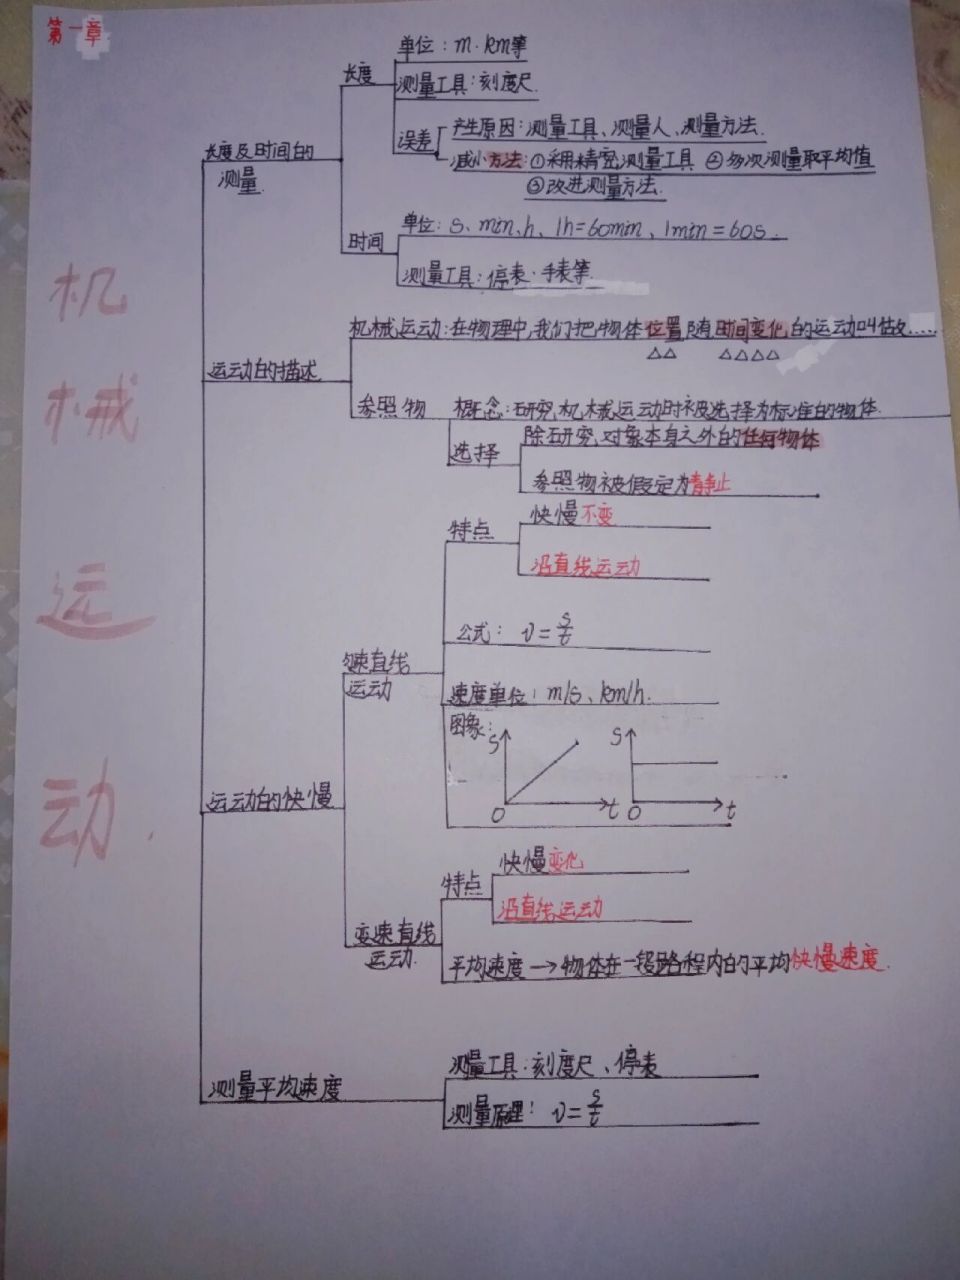 第一章
机械运动
长度及时间的
测量.
长度
单位：m.km等
测量工具：刻度尺.
误差
产生原因：测量工具、测量人、测量方法.
减小方法：①采用精密测量工具 ②多次测量取平均值
③改进测量方法.
时间
单位：s、min、h、1h=60min、1min=60s.
测量工具：停表、手表等.
运动的描述
机械运动：在物理中,我们把物体位置随时间变化的运动叫做......
△△ △△△△
参照物
概念：研究机械运动时被选择为标准的物体.
选择
除研究对象本身之外的任何物体
参照物被假定为静止
运动的快慢
匀速直线
运动
特点
快慢不变
沿直线运动
公式： v=s/t
速度单位：m/s、km/h.
图象：
S
O
t
S
O
t
变速直线
运动.
特点
快慢变化
沿直线运动
平均速度→物体在一段路程内的平均快慢速度.
测量平均速度
测量工具：刻度尺、停表
测量原理： v=s/t